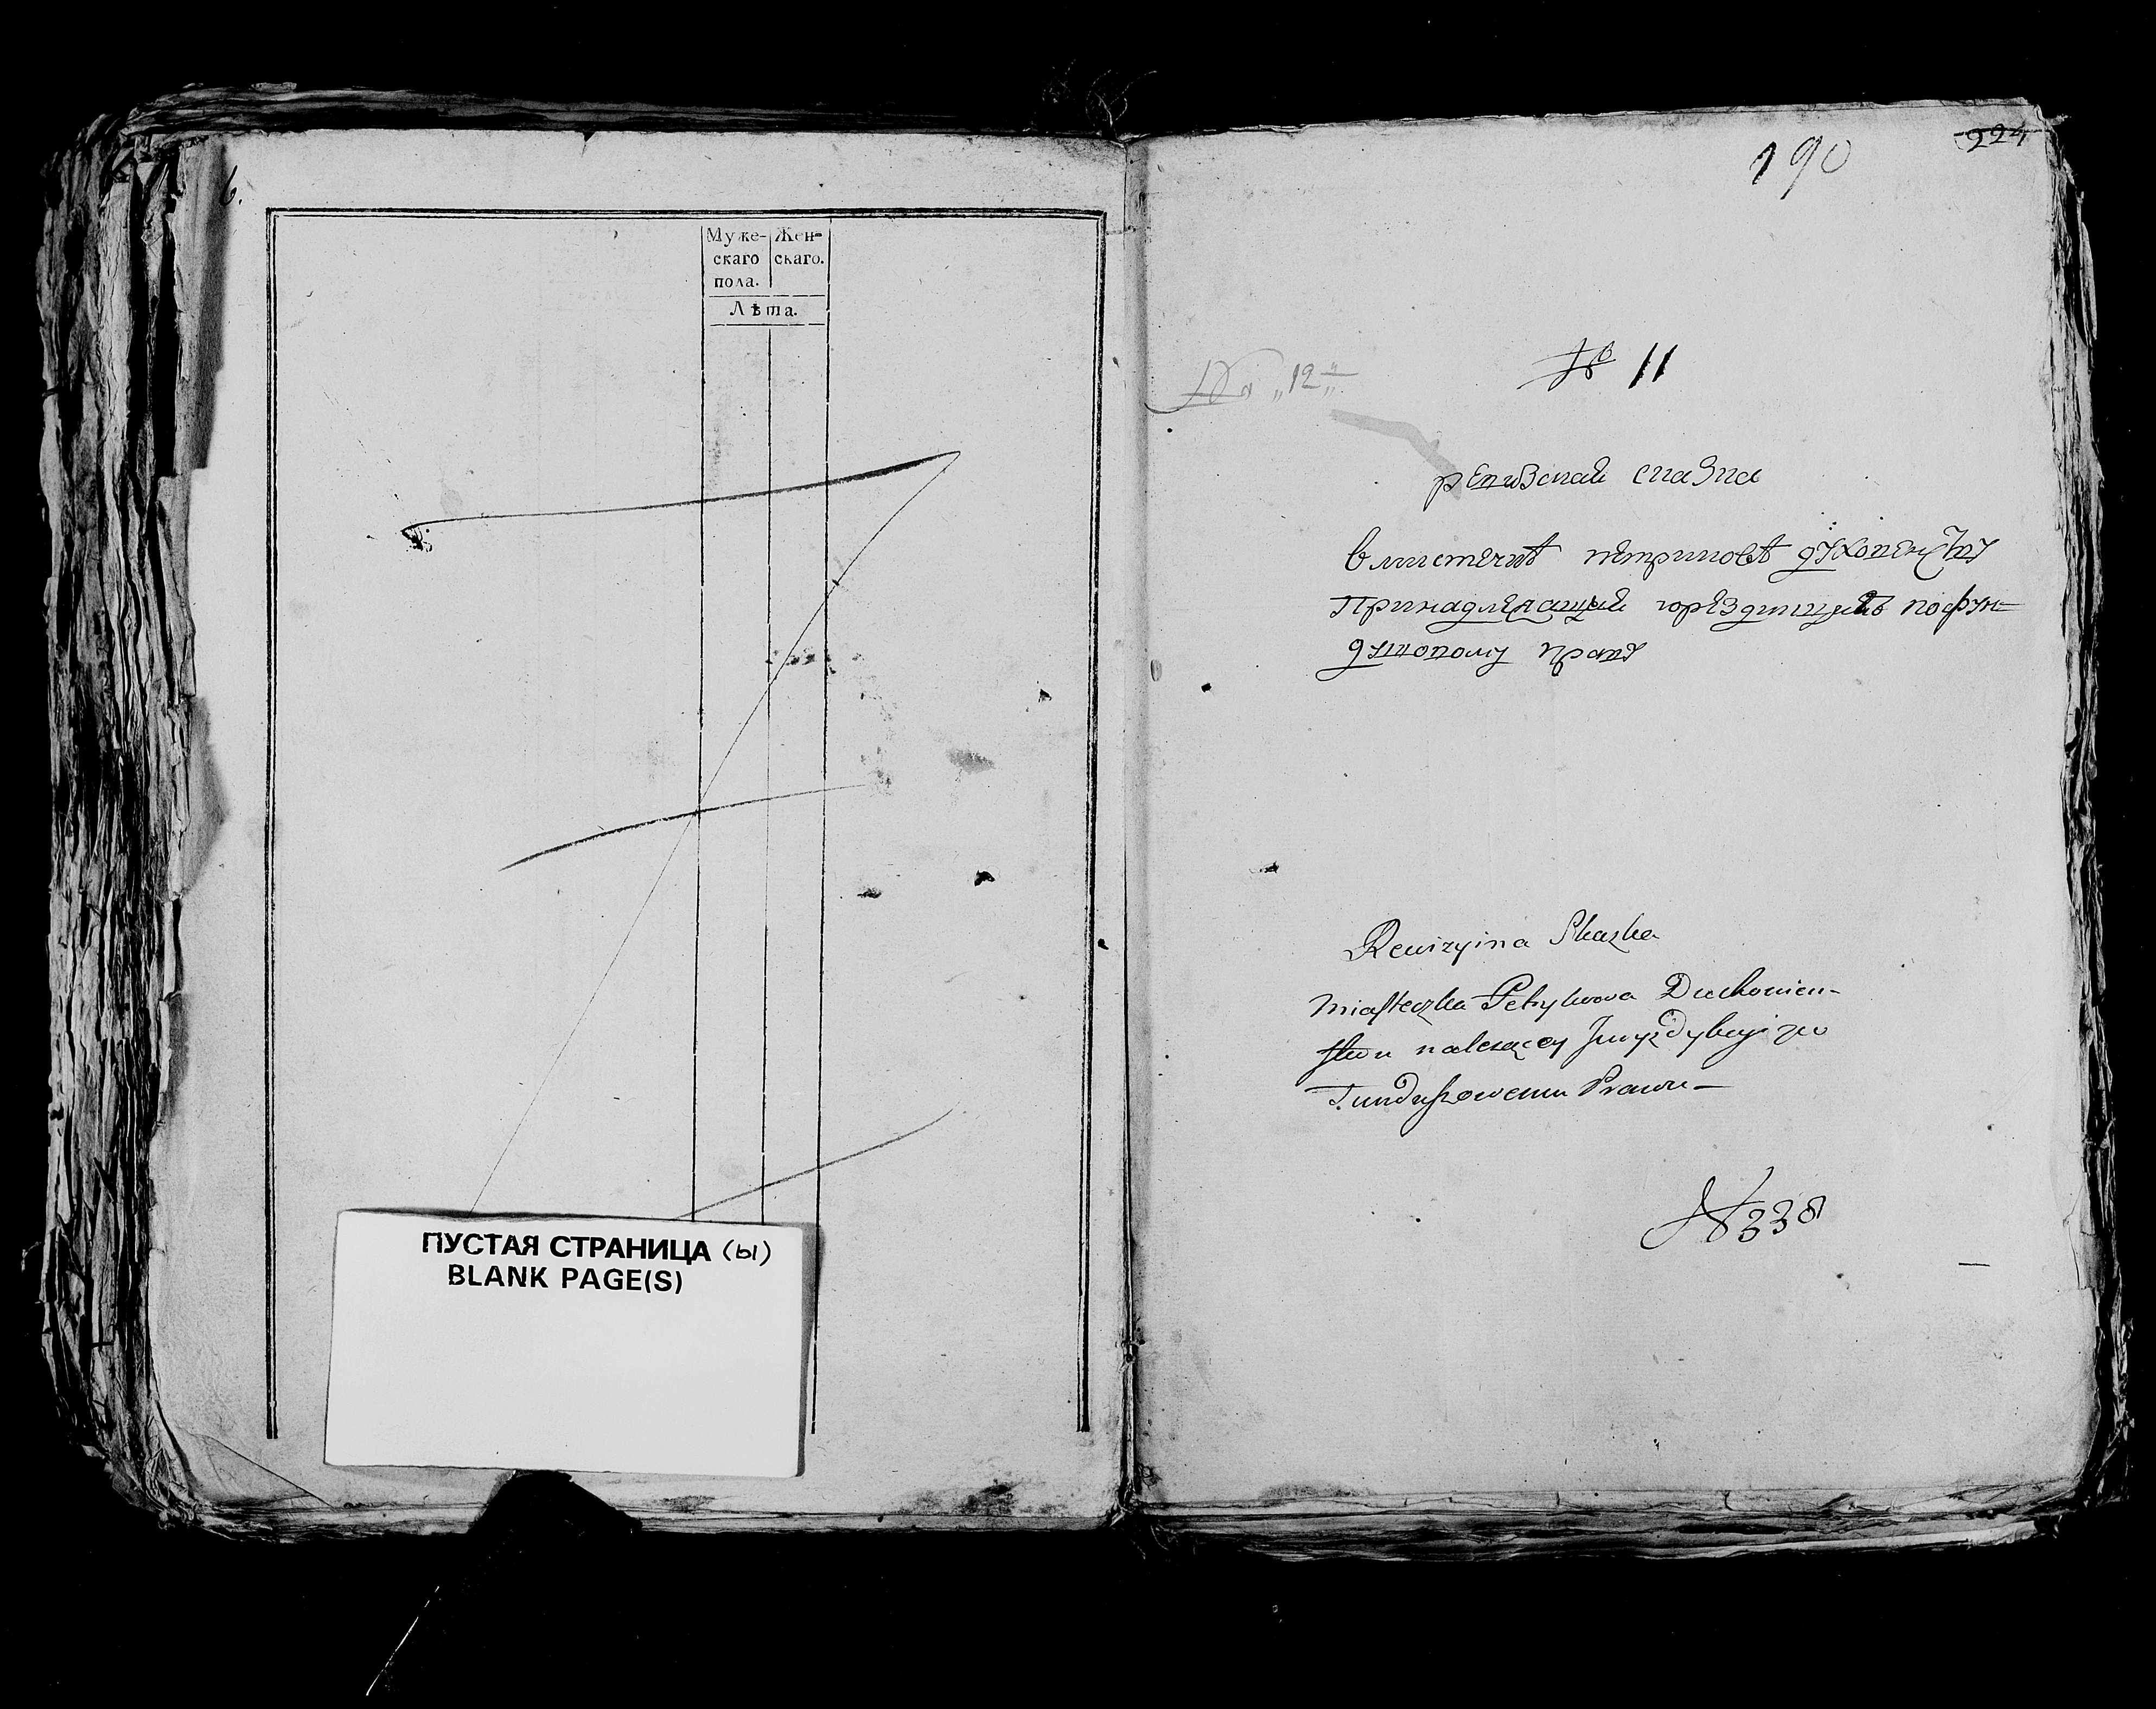 6.
Муже- Жен-
скаго скаго.
пола.
Лѣта.
ПУСТАЯ СТРАНИЦА (ы)
BLANK PAGE(S)
224
190
№ 11
„12„
ревизская сказка
в мистечкѣ петриковѣ духовенству
Принадлежащый юрездикцыѣ по фун-
душовому праву
Rewizyina Skazka
Miasteczka Petrykowa Duchowien-
stwu należącey Juryzdykcyi po
Funduszowemu Prawu —
№ 338